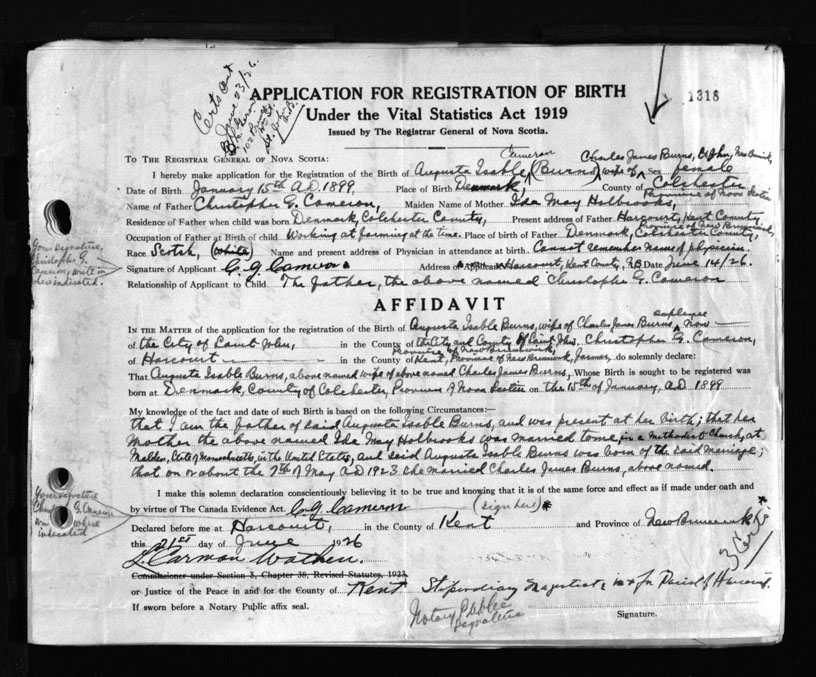 1318
Certs out
June 23/26.
APPLICATION FOR REGISTRATION OF BIRTH
Under the Vital Statistics Act 1919
Issued by The Registrar General of Nova Scotia.
TO THE REGISTRAR GENERAL OF NOVA SCOTIA:
Cameron Charles James Burns, St John, New Brunswick,
I hereby make application for the Registration of the Birth of Augusta Isable (Burns) wife of Sex female
Date of Birth January 15th A.D. 1899, Place of Birth Denmark, County of Colchester
Province of Nova Scotia
Name of Father Christopher G. Cameron, Maiden Name of Mother Ida May Holbrooks,
Residence of Father when child was born Denmark, Colchester County, Present address of Father Harcourt, Kent County
Province of New Brunswick,
Occupation of Father at Birth of child Working at farming at the time. Place of birth of Father Denmark, Colchester County,
Race Scotch, (White) Name and present address of Physician in attendance at birth. Cannot remember name of physician.
Signature of Applicant C. G. Cameron. Address of Applicant Harcourt, Kent County, N.B. Date June 14/26.
Relationship of Applicant to Child The father, the above named Christopher G. Cameron
Your signature,
Christopher G.
Cameron, write in
AFFIDAVIT
employee
IN THE MATTER of the application for the registration of the Birth of Augusta Isable Burns, wife of Charles James Burns now
of the City of Saint John, in the County of the City and County of Saint John. Christopher G. Cameron,
Province of New Brunswick,
of Harcourt in the County of Kent, Province of New Brunswick, farmer, do solemnly declare:
That Augusta Isable Burns, above named wife of above named Charles James Burns, Whose Birth is sought to be registered was
born at Denmark, County of Colchester, Province of Nova Scotia on the 15th of January, A.D. 1899
My knowledge of the fact and date of such Birth is based on the following Circumstances:—
that I am the father of said Augusta Isable Burns, and was present at her birth; that her
mother the above named Ida May Holbrooks was married to me, in a Methodist Church, at
Malden, State of Massachusetts, in the United States, and said Augusta Isable Burns was born of the said marriage;
that on or about the 7th of May A.D 1923 she married Charles James Burns, above named.
Your signature
G. Cameron
I make this solemn declaration conscientiously believing it to be true and knowing that it is of the same force and effect as if made under oath and
by virtue of The Canada Evidence Act. C. G. Cameron (sign here)*
Declared before me at Harcourt, in the County of Kent and Province of New Brunswick *
this 21st day of June 1926
3 Certs
L. Carman Wathen.
Commissioner under Section 3, Chapter 38, Revised Statutes, 1923.
or Justice of the Peace in and for the County of Kent Stipendiary Magistrate in & for Parish of Harcourt.
If sworn before a Notary Public affix seal.
Notary Publics
Signature.